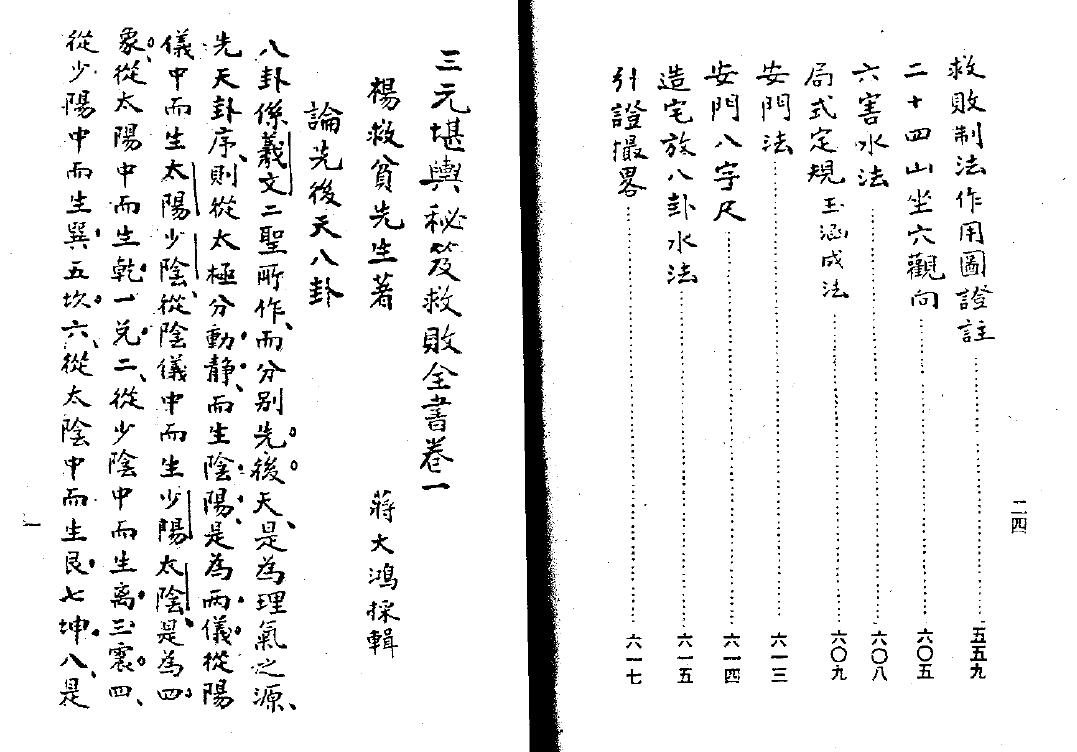 救敗制法作用圖證註……五五九
二十四山坐穴觀向……六〇五
六害水法……六〇八
局式定規玉涵成法……六〇九
安門法……六一三
安門八字尺……六一四
造宅放八卦水法……六一五
引證撮畧……六一七
二四
三元堪輿秘笈救敗全書卷一
楊救貧先生著 蔣大鴻採輯
論先後天八卦
八卦係羲文二聖所作、而分別先後天、是為理氣之源、
先天卦序、則從太極分動靜、而生陰陽、是為兩儀、從陽
儀中而生太陽少陰、從陰儀中而生少陽太陰、是為四
象、從太陽中而生乾一、兌二、從少陰中而生离三、震四、
從少陽中而生巽五、坎六、從太陰中而生艮七、坤八、是
一